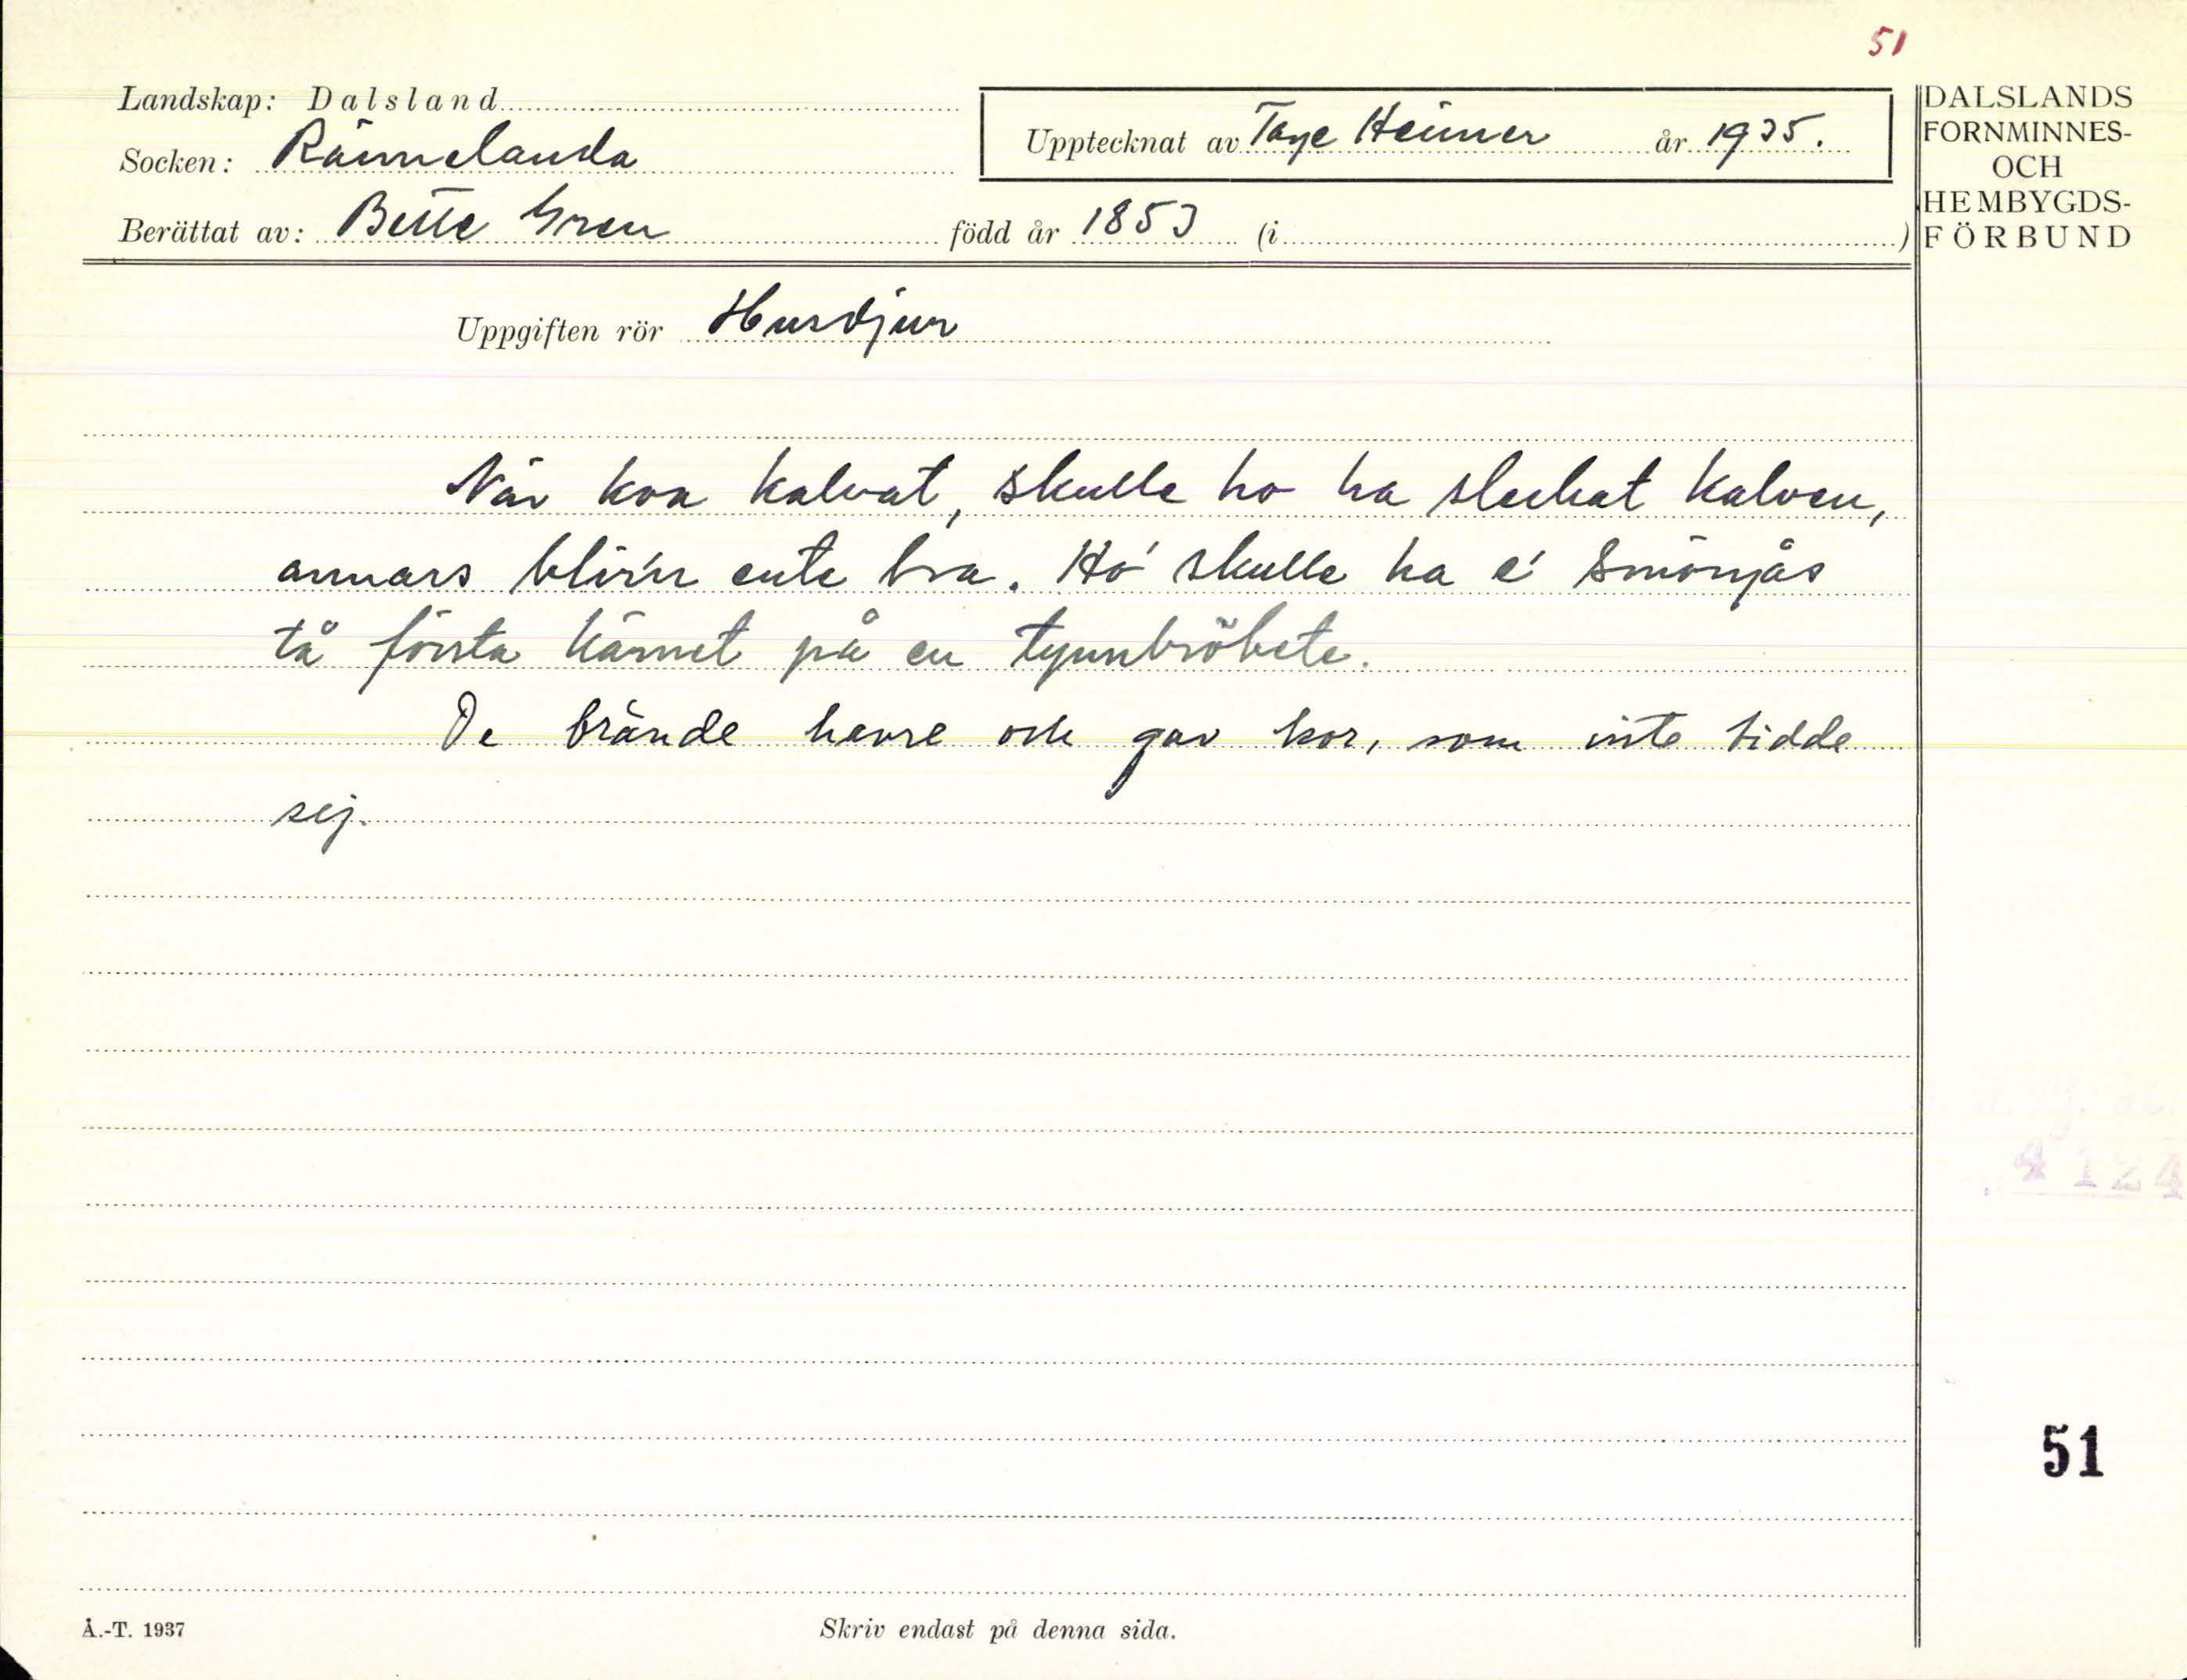 51
Landskap: Dalsland
Socken: Rännelanda
Upptecknat av Tage Heimer år 1935.
Berättat av: Britte Gren född år 1853 (i )
DALSLANDS
FORNMINNES-
OCH
HEMBYGDS-
FÖRBUND
Uppgiften rör Husdjur
När koa kalvat, skulle ho ha slekat kalven,
annars blir'n ente bra. Ho' skulle ha e' smörgås
tå första kärnet på en tynnbröbete.
De brände havre och gav kor, som inte tidde
sej.
4124
51
Å.-T. 1937
Skriv endast på denna sida.